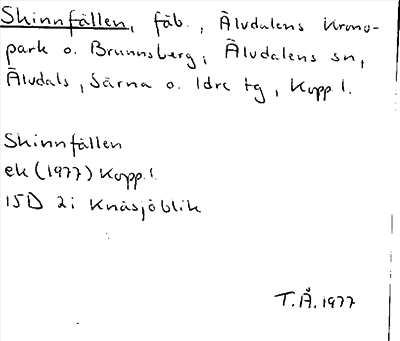 Skinnfällen, fäb., Älvdalens krono-
park o. Brunnsberg, Älvdalens sn,
Älvdals, Särna o. Idre tg, Kopp l.
Skinnfällen
ek (1977) Kopp. l.
15D 2i Knäsjöblik
T.Å. 1977